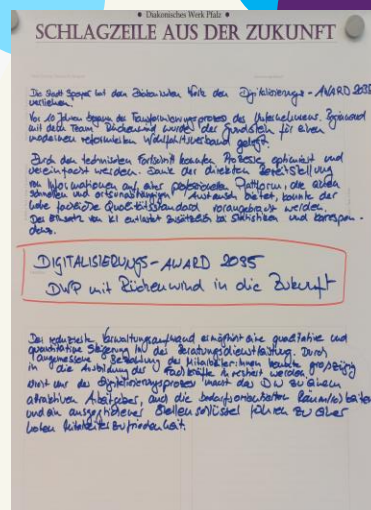 • Diakonisches Werk Pfalz •
SCHLAGZEILE AUS DER ZUKUNFT
Die Stadt Speyer hat dem Diakonischen Werk den Digitalisierungs-AWARD 2035
verliehen.
Vor 10 Jahren begann der Transformierungsprozess des Unternehmens. Beginnend
mit dem Team Rückenwind wurde der Grundstein für einen
modernen reformierten Wohlfahrtsverband gelegt.
Durch den technischen Fortschritt konnten Prozesse optimiert und
vereinfacht werden. Dank der direkten Bereitstellung
von Informationen auf einer professionellen Plattform, die einen
schnellen und ortsunabhängigen Austausch bietet, konnte der
hohe fachliche Qualitätsstandard vorangebracht werden.
Der Einsatz von KI entlastet zusätzlich bei Statistiken und Korrespon-
denz.
DIGITALISIERUNGS-AWARD 2035
DWP mit Rückenwind in die Zukunft
Der reduzierte Verwaltungsaufwand ermöglicht eine qualitative und
quantitative Steigerung in der Beratungsdienstleistung. Durch
angemessene Bezahlung der Mitarbeiterinnen konnte großzügig
in die Ausbildung der Fachkräfte investiert werden.
Nicht nur der Digitalisierungsprozess macht das DW zu einem
attraktiven Arbeitgeber, auch die bedarfsorientierten Räumlichkeiten
und ein ausgeglichener Stellenschlüssel führen zu einer
hohen Mitarbeiterzufriedenheit.